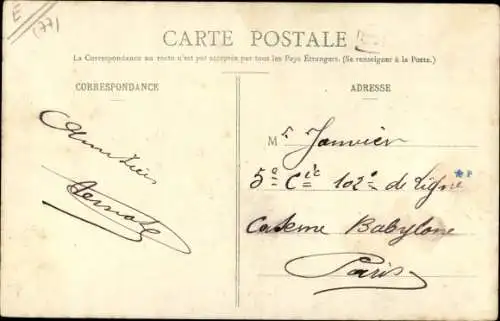 E
(77)
CARTE POSTALE
La Correspondance au recto n'est pas acceptée par tous les Pays Étrangers. (Se renseigner à la Poste.)
CORRESPONDANCE
ADRESSE
Amitiés
Mr Janvier
5e Cie 102e de Ligne
Caserne Babylone
Paris